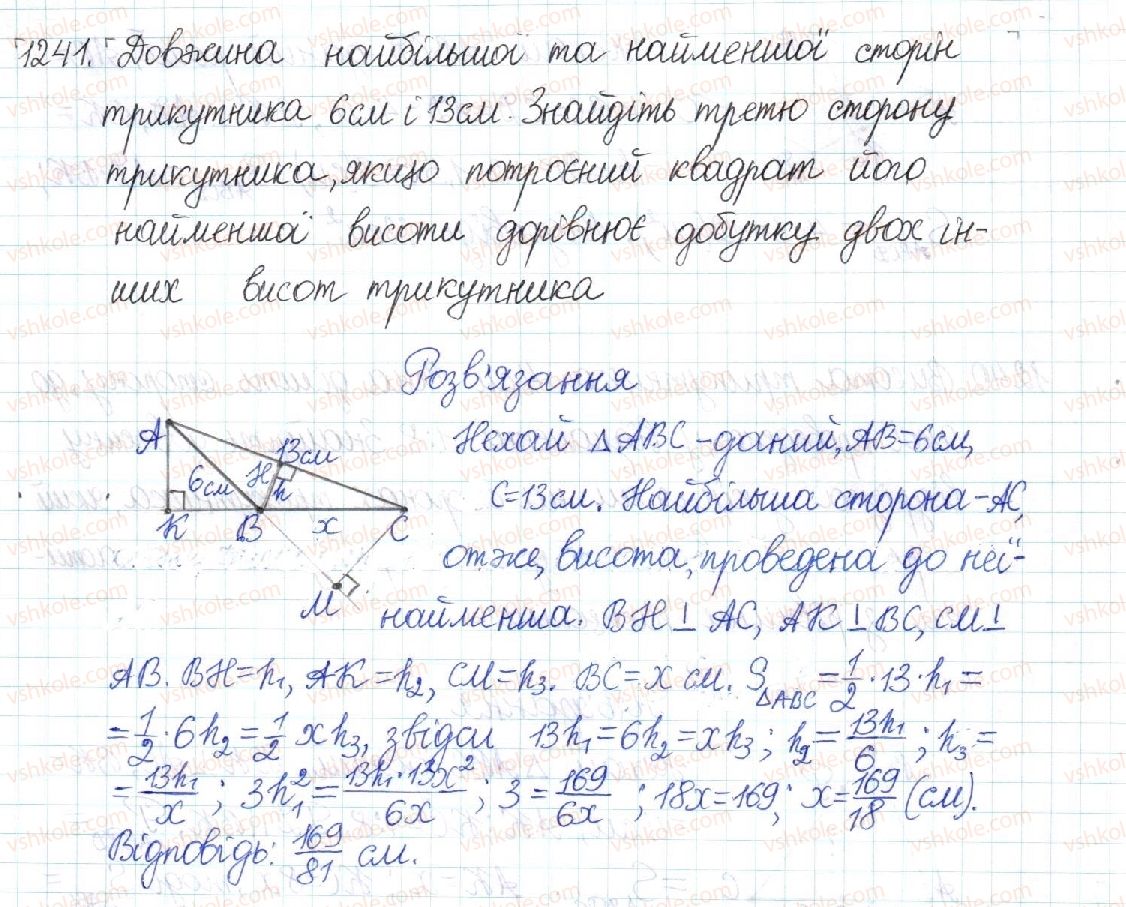 1241. Довжина найбільшої та найменшої сторін
трикутника 6см і 13см. Знайдіть третю сторону
трикутника, якщо потроєний квадрат його
найменшої висоти дорівнює добутку двох ін-
ших висот трикутника
Розв'язання
A 13см
6см H h
K B x C
M
Нехай △ABC - даний, AB=6см,
C=13см. Найбільша сторона - AC,
отже, висота, проведена до неї -
найменша. BH⊥AC, AK⊥BC, CM⊥
AB. BH=h₁, AK=h₂, CM=h₃. BC=x см. S△ABC = 1/2 · 13 · h₁ =
= 1/2 · 6h₂ = 1/2 xh₃, звідси 13h₁=6h₂=xh₃; h₂ = 13h₁/6; h₃ =
= 13h₁/x; 3h₁² = 13h₁·13x²/6x; 3 = 169/6x; 18x=169; x = 169/18 (см).
Відповідь: 169/81 см.